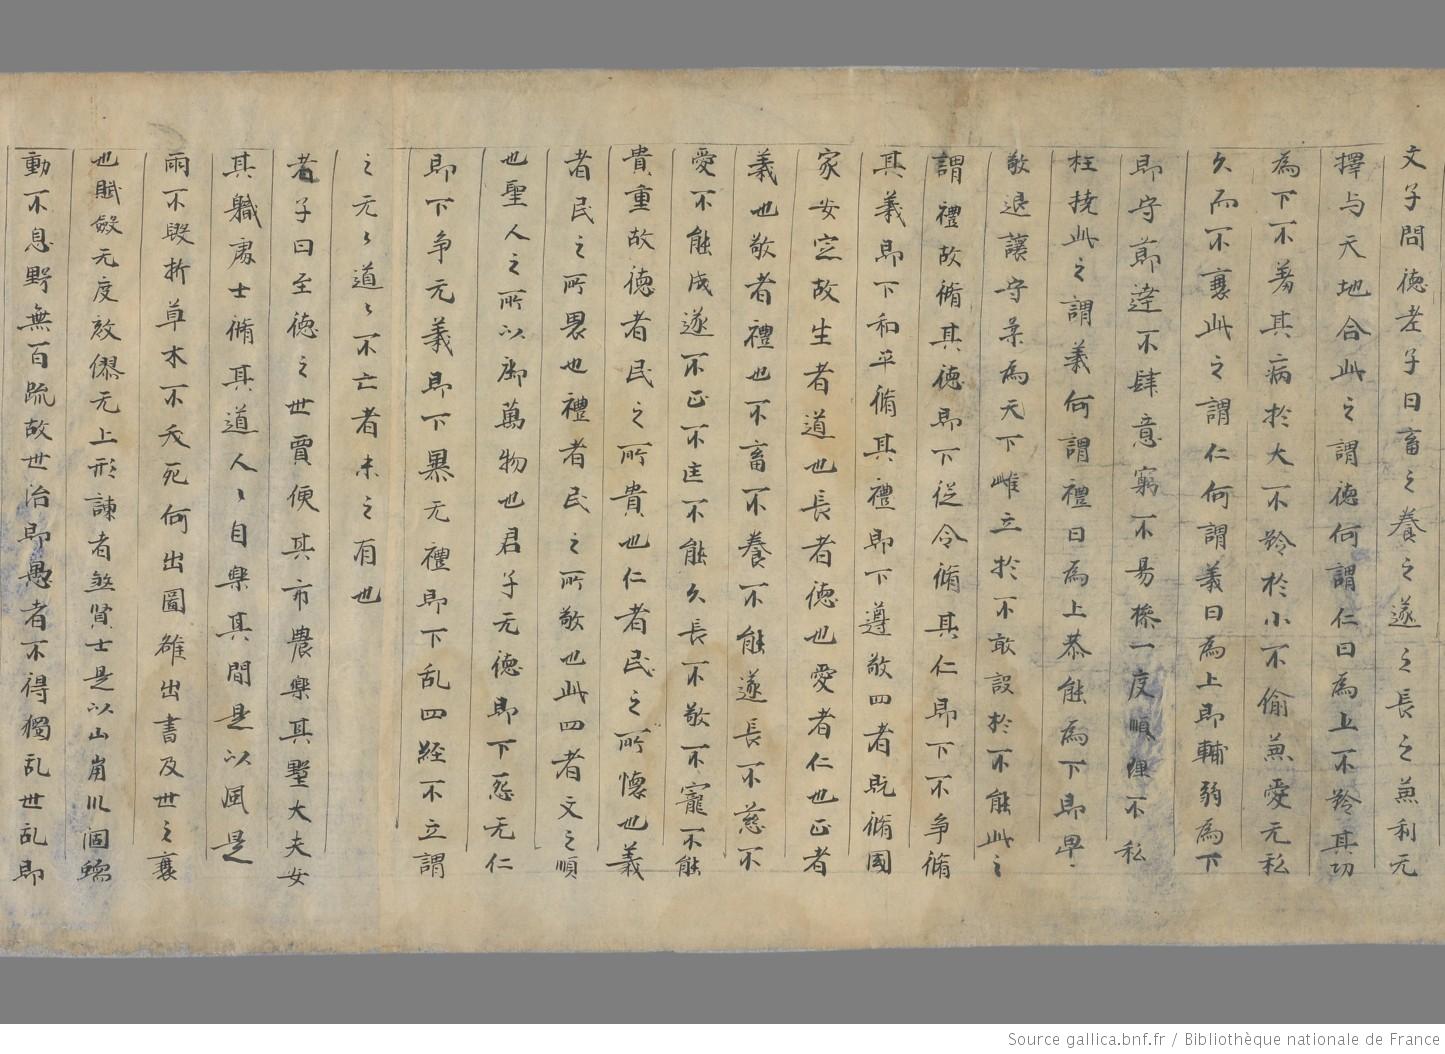 文子問德老子曰畜之養之遂之長之兼利无
擇与天地合此之謂德何謂仁曰為上不矜其功
為下不羞其病於大不矜於小不偷兼愛无私
久而不衰此之謂仁何謂義曰為上即輔弱為下
即守節達不肆意窮不易操一度順理不私
枉撓此之謂義何謂禮曰為上恭嚴為下即卑〻
敬退讓守柔為天下雌立於不敢設於不能此之
謂禮故脩其德即下從令脩其仁即下不爭脩
其義即下和平脩其禮即下遵敬四者既脩國
家安寍故生者道也長者德也愛者仁也正者
義也敬者禮也不畜不養不能遂長不慈不
愛不能成遂不正不匡不能久長不敬不寵不能
貴重故德者民之所貴也仁者民之所懷也義
者民之所畏也禮者民之所敬也此四者文之順
也聖人之所以御萬物也君子无德即下怨无仁
即下爭无義即下暴无禮即下乱四經不立謂
之无〻道〻不亡者未之有也
老子曰至德之世賈便其市農樂其壄大夫安
其軄處士脩其道人〻自樂其間是以風
雨不毀折草木不夭死何出圖雒出書及世之衰
也賦斂无度煞僇无止刑諫者煞賢士是以山崩川涸蝡
動不息野無百蔬故世治即愚者不得獨乱世乱即
Source gallica.bnf.fr / Bibliothèque nationale de France